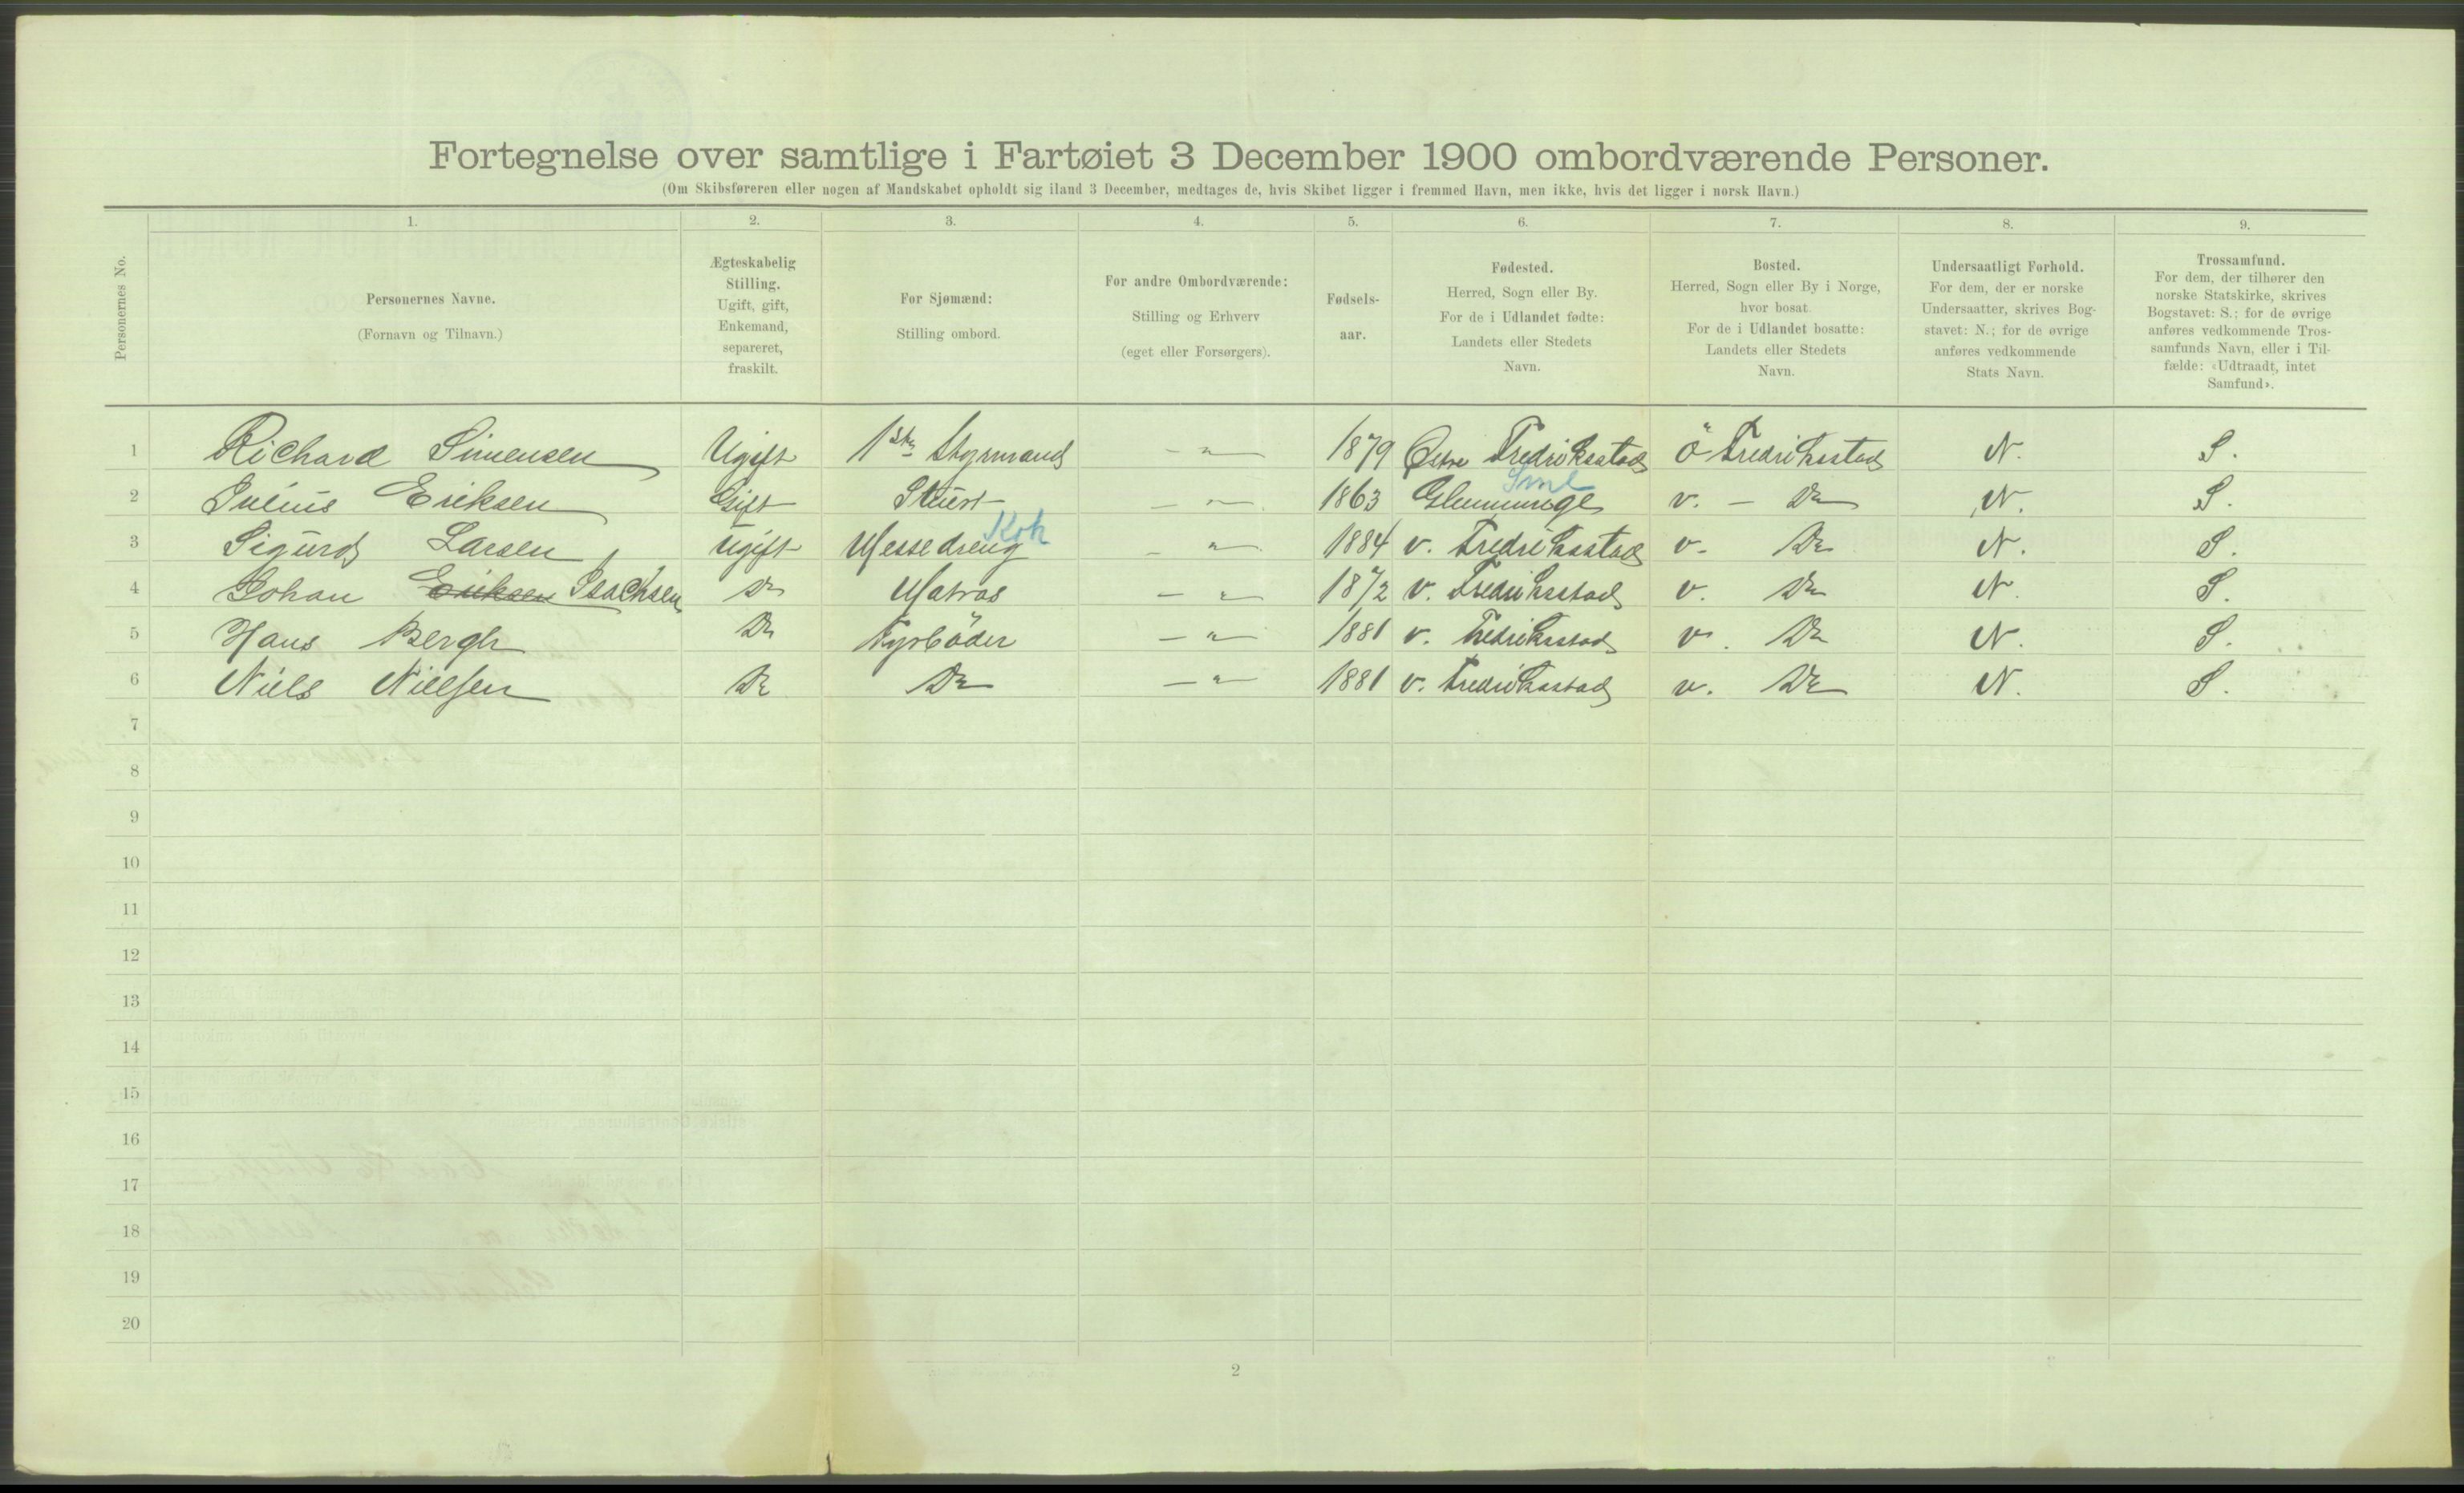 Fortegnelse over samtlige i Fartøiet 3 December 1900 ombordværende Personer.
(Om Skibsføreren eller nogen af Mandskabet opholdt sig iland 3 December, medtages de, hvis Skibet ligger i fremmed Havn, men ikke, hvis det ligger i norsk Havn.)
Personernes No.
1. 2. 3. 4. 5. 6. 7. 8. 9.
Personernes Navne.
(Fornavn og Tilnavn.)
Ægteskabelig
Stilling.
Ugift, gift,
Enkemand,
separeret,
fraskilt.
For Sjømænd:
Stilling ombord.
For andre Ombordværende:
Stilling og Erhverv
(eget eller Forsørgers).
Fødsels-
aar.
Fødested.
Herred, Sogn eller By.
For de i Udlandet fødte:
Landets eller Stedets
Navn.
Bosted.
Herred, Sogn eller By i Norge,
hvor bosat.
For de i Udlandet bosatte:
Landets eller Stedets
Navn.
Undersaatligt Forhold.
For dem, der er norske
Undersaatter, skrives Bog-
stavet: N.; for de øvrige
anføres vedkommende
Stats Navn.
Trossamfund.
For dem, der tilhører den
norske Statskirke, skrives
Bogstavet: S.; for de øvrige
anføres vedkommende Tros-
samfunds Navn, eller i Til-
fælde: «Udtraadt, intet
Samfund».
1 Richard Simensen Ugift 1ste Styrmand - " - 1879 Østre Fredriksstad Ö Fredriksstad N. S.
Sml
2 Julius Eriksen Gift Stuert - " - 1863 Glemminge v. - Do N. S.
Kok
3 Sigurd Larsen Ugift Messedreng - " - 1884 v. Fredriksstad v. Do N. S.
4 Johan Eriksen Isachsen Do Matros - " - 1872 v. Fredriksstad v. Do N. S.
5 Hans Bergh Do Fyrböder - " - 1881 v. Fredriksstad v. Do N. S.
6 Niels Nielsen Do Do - " - 1881 v. Fredriksstad v. Do N. S.
7
8
9
10
11
12
13
14
15
16
17
18
19
20
2